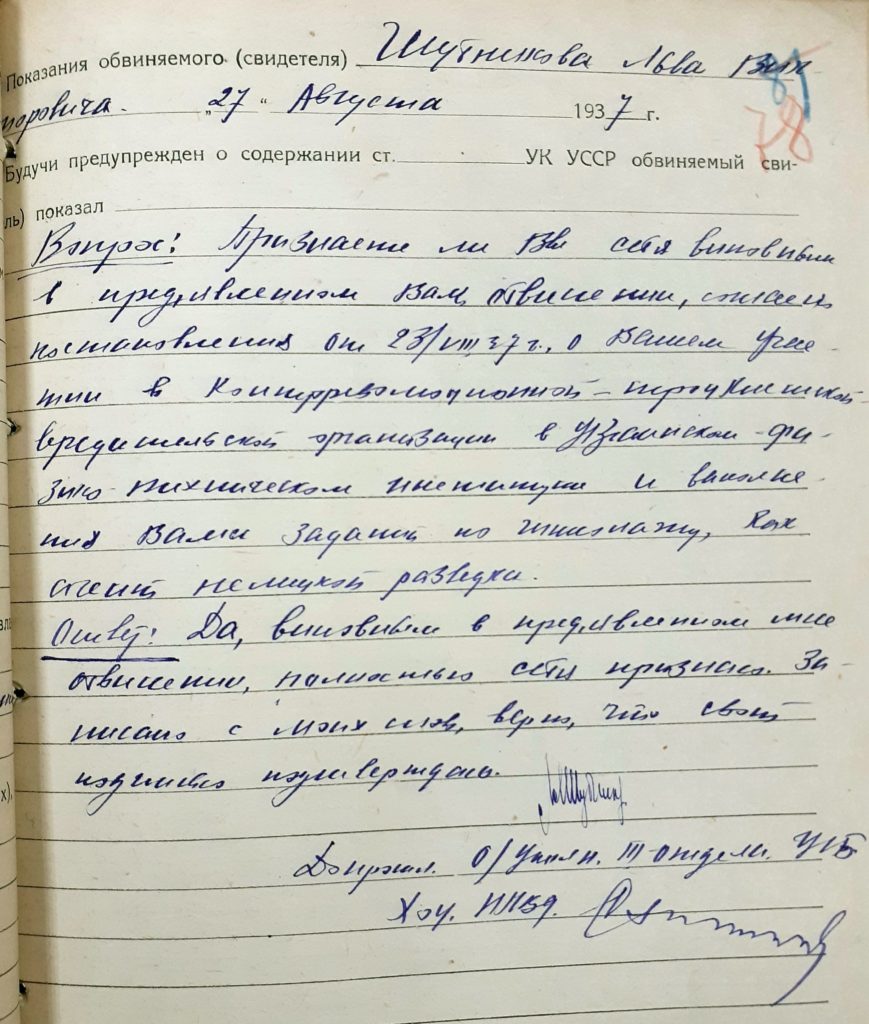 Показания обвиняемого (свидетеля) Шубникова Льва Вик-
торовича. „27“ Августа 1937 г.
Будучи предупрежден о содержании ст. УК УССР обвиняемый сви-
ль) показал
Вопрос: Признаете ли Вы себя виновным
в предъявленном Вам обвинении, согласно
постановления от 23/VIII 37 г., о Вашем учас-
тии в контрреволюционной-троцкистской
вредительской организации в Украинском фи-
зико-техническом институте и выполне-
ния Вами заданий по шпионажу, как
агент немецкой разведки.
Ответ: Да, виновным в предъявленном мне
обвинении, полностью себя признаю. За-
писано с моих слов, верно, что своей
подписью подтверждаю.
Допросил: О/Уполн. III отдела УГБ
ХОУ. НКВД.
78